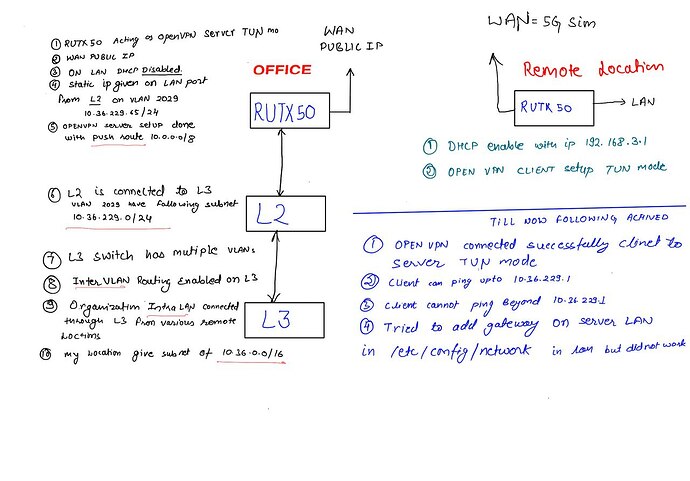 ① RUTX50 Acting as OpenVPN Server TUN mo
② WAN PUBLIC IP
③ ON LAN DHCP Disabled
④ Static ip given on LAN port
from L2 on VLAN 2029
10.36.229.65/24
⑤ OPENVPN server setup done
with push route 10.0.0.0/8
⑥ L2 is connected to L3
VLAN 2029 have following subnet
10.36.229.0/24
⑦ L3 switch has mutiple VLANs
⑧ InterVLAN Routing Enabled on L3
⑨ Organization Intra LAN connected
through L3 from various remote
Loctions
⑩ my Location give subnet of 10.36.0.0/16
WAN
PUBLIC IP
OFFICE
RUTX50
L2
L3
WAN = 5G Sim
Remote Location
RUTX50
LAN
① DHCP enable with ip 192.168.3.1
② OPEN VPN CLIENT setup TUN mode
TILL NOW FOLLOWING ACHIVED
① OPEN VPN connected successfully clinet to
server TUN mode
② Client can ping upto 10.36.229.1
③ Client cannot ping Beyond 10.36.229.1
④ Tried to add gateway on server LAN
in /etc/config/network in lan but did not work